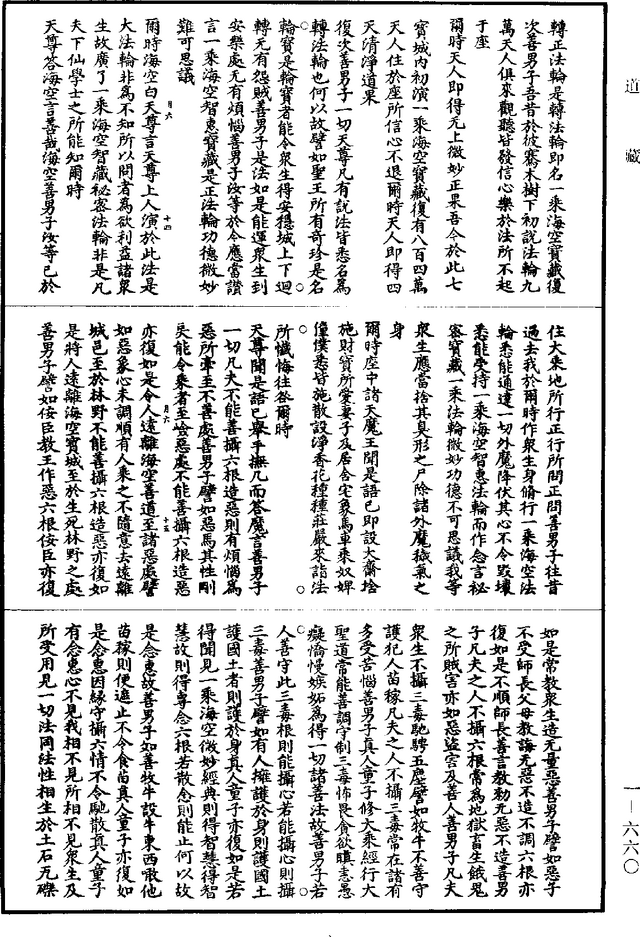 道藏
轉正法輪是轉法輪即名一乘海空寶藏復
次善男子吾昔於彼騫木樹下初說法輪九
萬天人俱來觀聽皆發信心樂於法所不起
于座
爾時天人即得无上微妙正果吾今於此七
寶城內初演一乘海空寶藏復有八百四萬
天人住於座所信心不退爾時天人即得四
天清淨道果
復次善男子一切天尊凡有說法皆悉名為
轉法輪也何以故譬如聖王所有奇珍是名
輪寶是輪寶者能令眾生得安穩城上下迴
轉无有怨賊善男子是法如是能運眾生到
安樂處无有煩惱善男子汝等於今應當讚
言一乘海空智惠寶藏是正法輪功德微妙
難可思議
月六 十四
爾時海空白天尊言天尊上人演於此法是
大法輪非為不知所以問者為欲利益諸眾
生故廣了一乘海空智藏秘密法輪非是凡
夫下仙學士之所能知爾時
天尊答海空言善哉海空善男子汝等已於
住大乘地所行正行所問正問善男子往昔
過去我於爾時作眾生身脩行一乘海空法
輪悉能通達一切外魔降伏其心不令毀壞
悉能受持一乘海空智惠法輪而作念言祕
密寶藏一乘法輪微妙功德不可思議我等
眾生應當捨其臭形之尸除諸外魔穢氣之
身
爾時座中諸天魔王聞是語已即設大齋捨
施財寶所愛妻子及居舍宅象馬車乘奴婢
僮僕悉皆施散設淨香花種種莊嚴來詣法
所懺悔往咎爾時
天尊聞是語已舉手撫几而答魔言善男子
一切凡夫不能善攝六根造惡則有煩惱為
惡所牽至不善處善男子譬如惡馬其性剛
吳能令乘者至崄惡處不能善攝六根造惡
月六 十五
亦復如是令人遠離海空善道至諸惡處譬
如惡象心未調順有人乘之不隨意去遠離
城邑至於林野不能善攝六根造惡亦復如
是將人遠離海空寶城至於生死林野之處
善男子譬如佞臣教王作惡六根佞臣亦復
如是常教眾生造无量惡善男子譬如惡子
不受師長父母教誨无惡不造不調六根亦
復如是不順師長善言教勑无惡不造善男
子凡夫之人不攝六根常為地獄畜生餓鬼
之所賊害亦如惡盜害及善人善男子凡夫
眾生不攝三毒馳騁五塵譬如牧牛不善守
護犯人苗稼凡夫之人不攝三毒常在諸有
多受苦惱善男子真人童子修大乘經行大
聖道常能善調守制三毒怖畏貪欲瞋恚愚
癡憍慢嫉妬為得一切諸善法故善男子若
人善守此三毒根則能攝心若能攝心則攝
三毒善男子譬如有人擁護於身則護國土
護國土者則護於身真人童子亦復如是若
得聞見一乘海空微妙經典則得智慧得智
慧故則得專念六根若散念則能止何以故
是念惠故善男子如善牧牛設牛東西噉他
苗稼則便遮止不令食苗真人童子亦復如
是念惠因緣守攝六情不令馳散真人童子
有念惠心不見我相不見所相不見眾生及
所受用見一切法同法性相生於土石瓦礫
一—六六〇